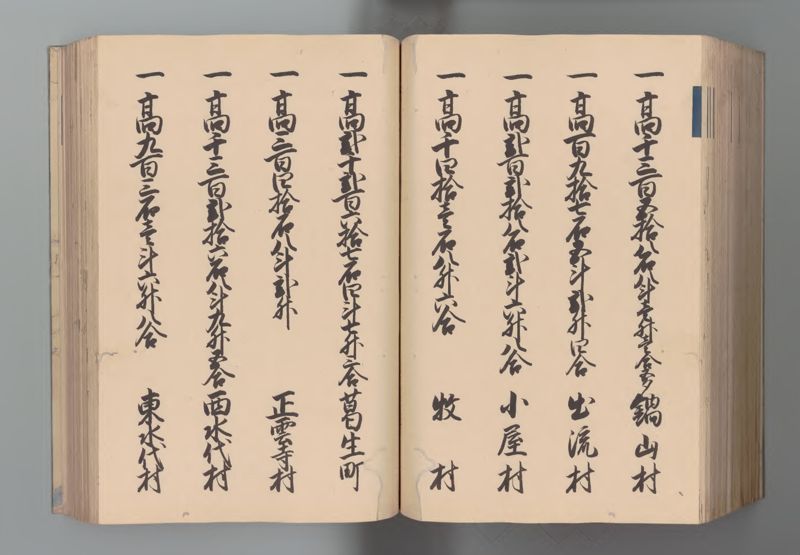 一 高千三百五拾八石八斗壱升壱合五夕 鍋山村
一 高百九拾七石五斗弐升四合 出流村
一 高弐百弐拾八石弐斗六升八合 小屋村
一 高千四拾壱石八升六合 牧村
一 高弐千弐百六拾七石四斗七升三合 葛生町
一 高三百四拾石八斗弐升 正雲寺村
一 高千三百弐拾六石八斗九升五合 西水代村
一 高九百三石壱斗六升八合 東水代村